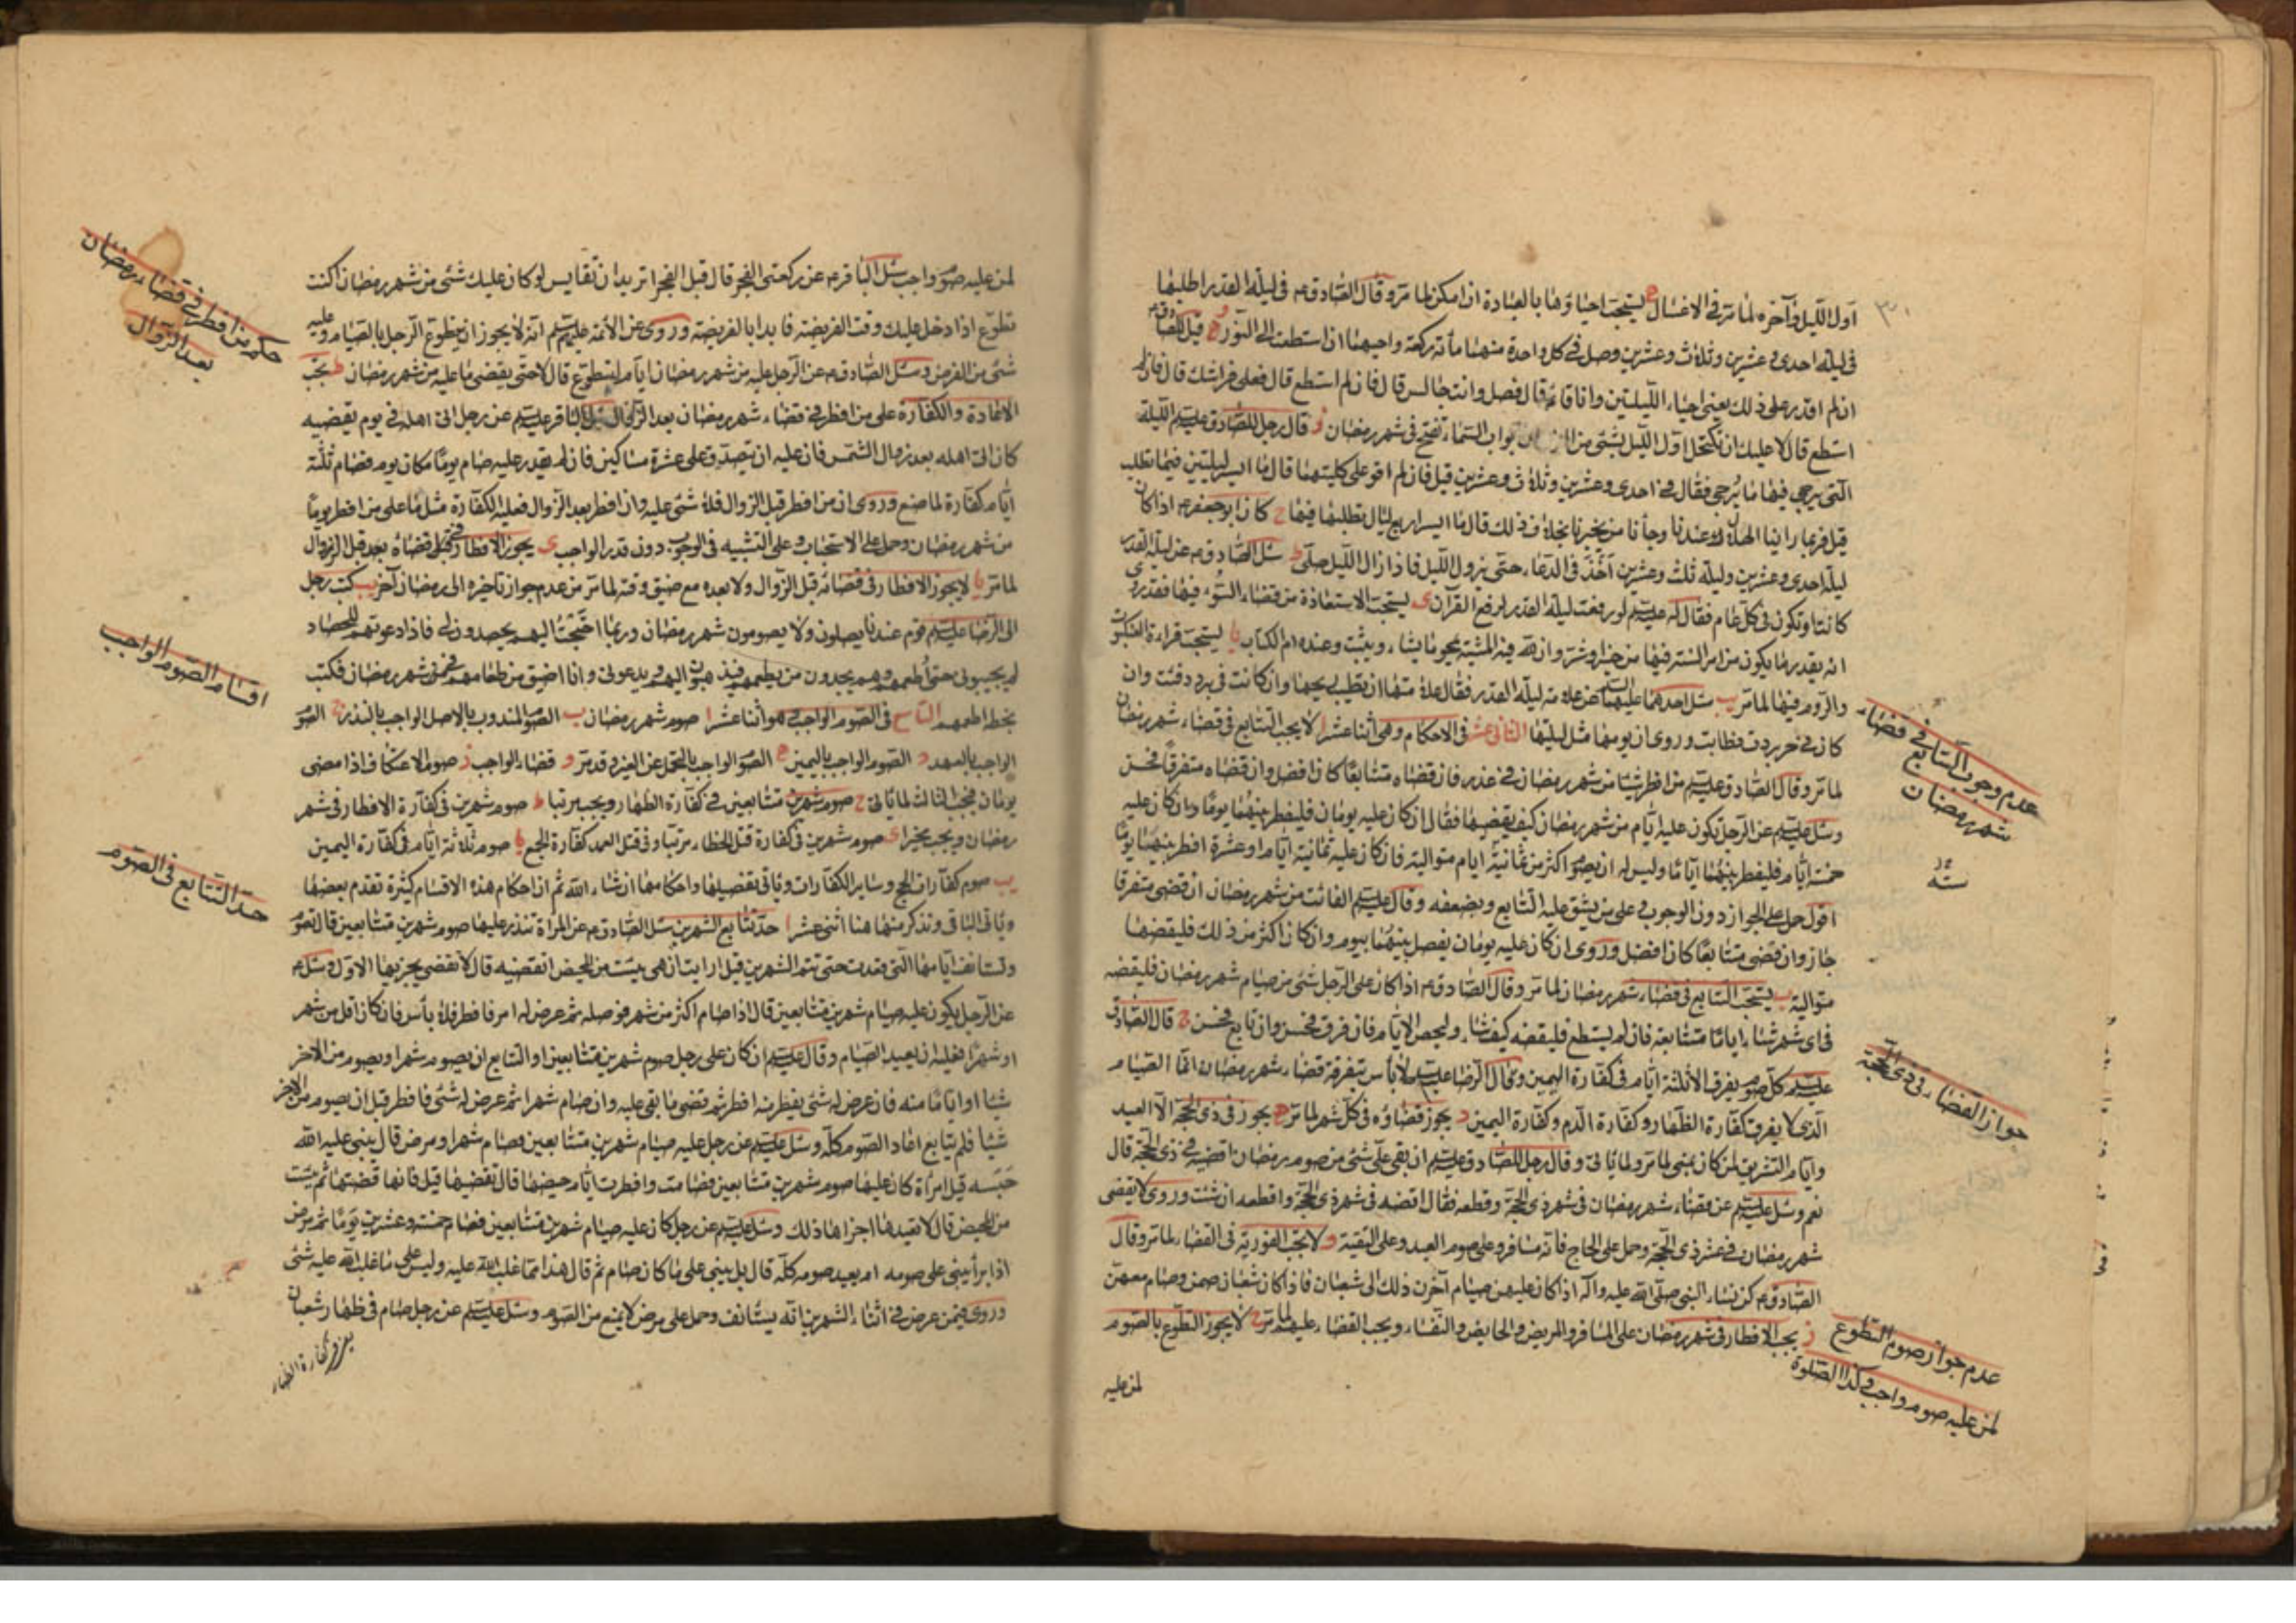 اول الليل وآخره لما مر في الاغسال ه يستحب احياؤها بالعبادة ان امكن لما مر وقال الصادق ع في ليلة القدر اطلبها
في ليلة احدى وعشرين وثلاث وعشرين وصل في كل واحدة منهما مائة ركعة واحيهما ان استطعت الى النور و قيل للصادق ع
ان لم اقدر على ذلك يعني احياء الليلتين وانا قائم قال فصل وانت جالس قال فان لم استطع قال فعلى فراشك قال فان لم
استطع قال لا عليك ان تكتحل اول الليل بشئ من ابواب السماء تفتح في شهر رمضان ز قال رجل للصادق عليه السلم الليلة
التي يرجى فيها ما يرجى فقال في احدى وعشرين وثلاث وعشرين قيل فان لم اقو على كلتيهما قال ما ايسر ليلتين فيما تطلب
قيل فربما راينا الهلال عندنا وجاءنا من يخبرنا بخلاف ذلك قال ما ايسر اربع ليال تطلبها فيها ح كان ابو جعفر ع اذا كان
ليلة احدى وعشرين وليلة ثلث وعشرين اخذ في الدعاء حتى يزول الليل فاذا زال الليل صلى ط سئل الصادق ع عن ليلة القدر
كانت او تكون في كل عام فقال له عليه السلم لو رفعت ليلة القدر لرفع القرآن ى يستحب الاستعاذة من قضاء السوء فيها فقد روي
انه يقدر ما يكون من امر السنة فيها من خير او شر وان لله فيه المشية يمحو ما يشاء ويثبت وعنده ام الكتاب يا يستحب قراءة العنكبوت
والروم فيها لما مر يب سئل احدهما عليهما السلام عن علامة ليلة القدر فقال علامتها ان تطيب ريحها وان كانت في برد دفئت وان
كان في حر بردت فطابت وروي ان يومها مثل ليلتها الثاني عشر في الاحكام وهي اثنا عشر ا لا يجب التتابع في قضاء شهر رمضان
لما مر وقال الصادق عليه السلم من افطر شيئا من شهر رمضان في عذر فان قضاه متتابعا كان افضل وان قضاه متفرقا فحسن
وسئل عليه السلم عن الرجل يكون عليه ايام من شهر رمضان كيف يقضيها فقال ان كان عليه يومان فليفطر بينهما يوما وان كان عليه
خمسة ايام فليفطر بينهما اياما وليس له ان يصوم اكثر من ثمانية ايام متوالية فان كان عليه ثمانية ايام او عشرة افطر بينهما يوما
اقول حمل على الجواز دون الوجوب وعلى من يشق عليه التتابع ويضعفه وقال عليه السلم الفائت من شهر رمضان ان قضى متفرقا
جاز وان قضى متتابعا كان افضل وروي ان كان عليه يومان يفصل بينهما بيوم وان كان اكثر من ذلك فليقضها
متوالية ب يستحب التتابع في قضاء شهر رمضان لما مر وقال الصادق ع اذا كان على الرجل شئ من صيام شهر رمضان فليقضه
في اي شهر شاء اياما متتابعة فان لم يستطع فليقضه كيف شاء وليحص الايام فان فرق فحسن وان تابع فحسن ج قال الصادق
عليه السلم كل صوم يفرق الا ثلثة ايام في كفارة اليمين وقال الرضا عليه السلم لا بأس بتفرقة قضاء شهر رمضان انما الصيام
الذي لا يفرق كفارة الظهار وكفارة الدم وكفارة اليمين د يجوز قضاؤه في كل شهر لما مر ه يجوز في ذي الحجة الا العيد
وايام التشريق لمن كان بمنى لما مر ولما ياتي وقال رجل للصادق عليه السلم ان بقي علي شئ من صوم رمضان اقضيه في ذي الحجة قال
نعم وسئل عليه السلم عن قضاء شهر رمضان في شهر ذي الحجة وقطعه فقال اقضه في شهر ذي الحجة واقطعه ان شئت وروي لا يقضى
شهر رمضان في عشر ذي الحجة وحمل على الحاج فانه مسافر وعلى صوم العيد وعلى التقية و لا يجب الفورية في القضاء لما مر وقال
الصادق ع كن نساء النبي صلى الله عليه وآله اذا كان عليهن صيام آخرن ذلك الى شعبان فاذا كان شعبان صمن وصام معهن
ز يجب الافطار في شهر رمضان على المسافر والمريض والحايض والنفساء ويجب القضاء عليهم لما مر ح لا يجوز التطوع بالصوم
لمن عليه
عدم وجوب التتابع في قضاء
شهر رمضان
جواز القضاء في ذي الحجة
عدم جواز صوم التطوع
لمن عليه صوم واجب وكذا الصلوة
لمن عليه صوم واجب سئل الباقر ع عن ركعتي الفجر قال قبل الفجر اتريد ان تقايس لو كان عليك شئ من شهر رمضان اكنت
تطوع اذا دخل عليك وقت الفريضة فابدا بالفريضة وروي عن الائمة عليهم السلم انه لا يجوز ان يتطوع الرجل بالصيام وعليه
شئ من الفرض وسئل الصادق ع عن الرجل عليه من شهر رمضان ايام ايتطوع قال لا حتى يقضي ما عليه من شهر رمضان ط يجب
الاعادة والكفارة على من افطر في قضاء شهر رمضان بعد الزوال سئل الباقر عليه السلم عن رجل اتى اهله في يوم يقضيه
كان اتى اهله بعد زوال الشمس فان عليه ان يتصدق على عشرة مساكين فان لم يقدر عليه صام يوما مكان يوم وصام ثلثة
ايام كفارة لما صنع وروي ان من افطر قبل الزوال فلا شئ عليه وان افطر بعد الزوال فعليه الكفارة مثل ما على من افطر يوما
من شهر رمضان وحمل على الاستحباب وعلى التشبيه في الوجوب دون قدر الواجب ى يجوز الافطار في قضاه قبل الزوال
لما مر يا لا يجوز الافطار في قضائه قبل الزوال ولا بعده مع ضيق وقته لما مر من عدم جواز تاخيره الى رمضان آخر يب كتب رجل
الى الرضا عليه السلم قوم عندنا يصلون ولا يصومون شهر رمضان وربما احتجت اليهم يحصدون لي فاذا دعوتهم للحصاد
لم يجيبوني حتى اطعمهم وهم يجدون من يطعمهم فيذهبون اليهم ويدعوني وانا اضيق من اطعامهم في شهر رمضان فكتب
بخطه اطعمهم التاسع في الصوم الواجب وهو اثنا عشر ا صوم شهر رمضان ب الصوم المندوب بالاصل الواجب بالنذر ج الصوم
الواجب بالعهد د الصوم الواجب باليمين ه الصوم الواجب بالتحمل عن الغير وقد مر و قضاء الواجب ز صوم الاعتكاف اذا مضى
يومان فيجب الثالث لما ياتي ح صوم شهرين متتابعين في كفارة الظهار ويجب مرتبا ط صوم شهرين في كفارة الافطار في شهر
رمضان ويجب مخيرا ى صوم شهرين في كفارة قتل الخطاء مرتبا وفي قتل العمد كفارة الجمع يا صوم ثلاثة ايام في كفارة اليمين
يب صوم كفارات الحج وساير الكفارات وياتي تفصيلها واحكامها ان شاء الله ثم ان احكام هذه الاقسام كثيرة تقدم بعضها
وياتي الباقي ونذكر منها هنا اثنى عشر ا حد تتابع الشهرين سئل الصادق ع عن المراة تنذر عليها صوم شهرين متتابعين قال تصوم
وتستانف ايامها التي قعدت حتى تتم الشهرين قيل ارايت ان هي يئست من المحيض اتقضيه قال لا تقضي يجزيها الاول وسئل ع
عن الرجل يكون عليه صيام شهرين متتابعين قال اذا صام اكثر من شهر فوصله ثم عرض له امر فافطر فلا بأس فان كان اقل من شهر
او شهرا فعليه ان يعيد الصيام وقال عليه السلم ان كان على رجل صوم شهرين متتابعين او التتابع ان يصوم شهرا ويصوم من الآخر
شيئا او اياما منه فان عرض له شئ يفطر منه افطر ثم قضى ما بقي عليه وان صام شهرا ثم عرض له شئ فافطر قبل ان يصوم من الاخر
شيئا فلم يتابع اعاد الصوم كله وسئل عليه السلم عن رجل عليه صيام شهرين متتابعين فصام شهرا ومرض قال يبني عليه الله
حبسه قيل امراة كان عليها صوم شهرين متتابعين فصامت وافطرت ايام حيضها قال تقضيها قيل فانها قضتها ثم يئست
من المحيض قال لا تعيدها اجزاها ذلك وسئل عليه السلم عن رجل كان عليه صيام شهرين متتابعين فصام خمسة وعشرين يوما ثم مرض
اذا برأ يبني على صومه ام يعيد صومه كله قال بل يبني على ما كان صام ثم قال هذا مما غلب الله عليه وليس على ما غلب الله عليه شئ
وروي فيمن عرض في اثناء الشهرين انه يستانف وحمل على مرض لا يمنع من الصوم وسئل عليه السلم عن رجل صام في ظهار شعبان
حكم من افطر في قضاء رمضان
بعد الزوال
اقسام الصوم الواجب
حد التتابع في الصوم